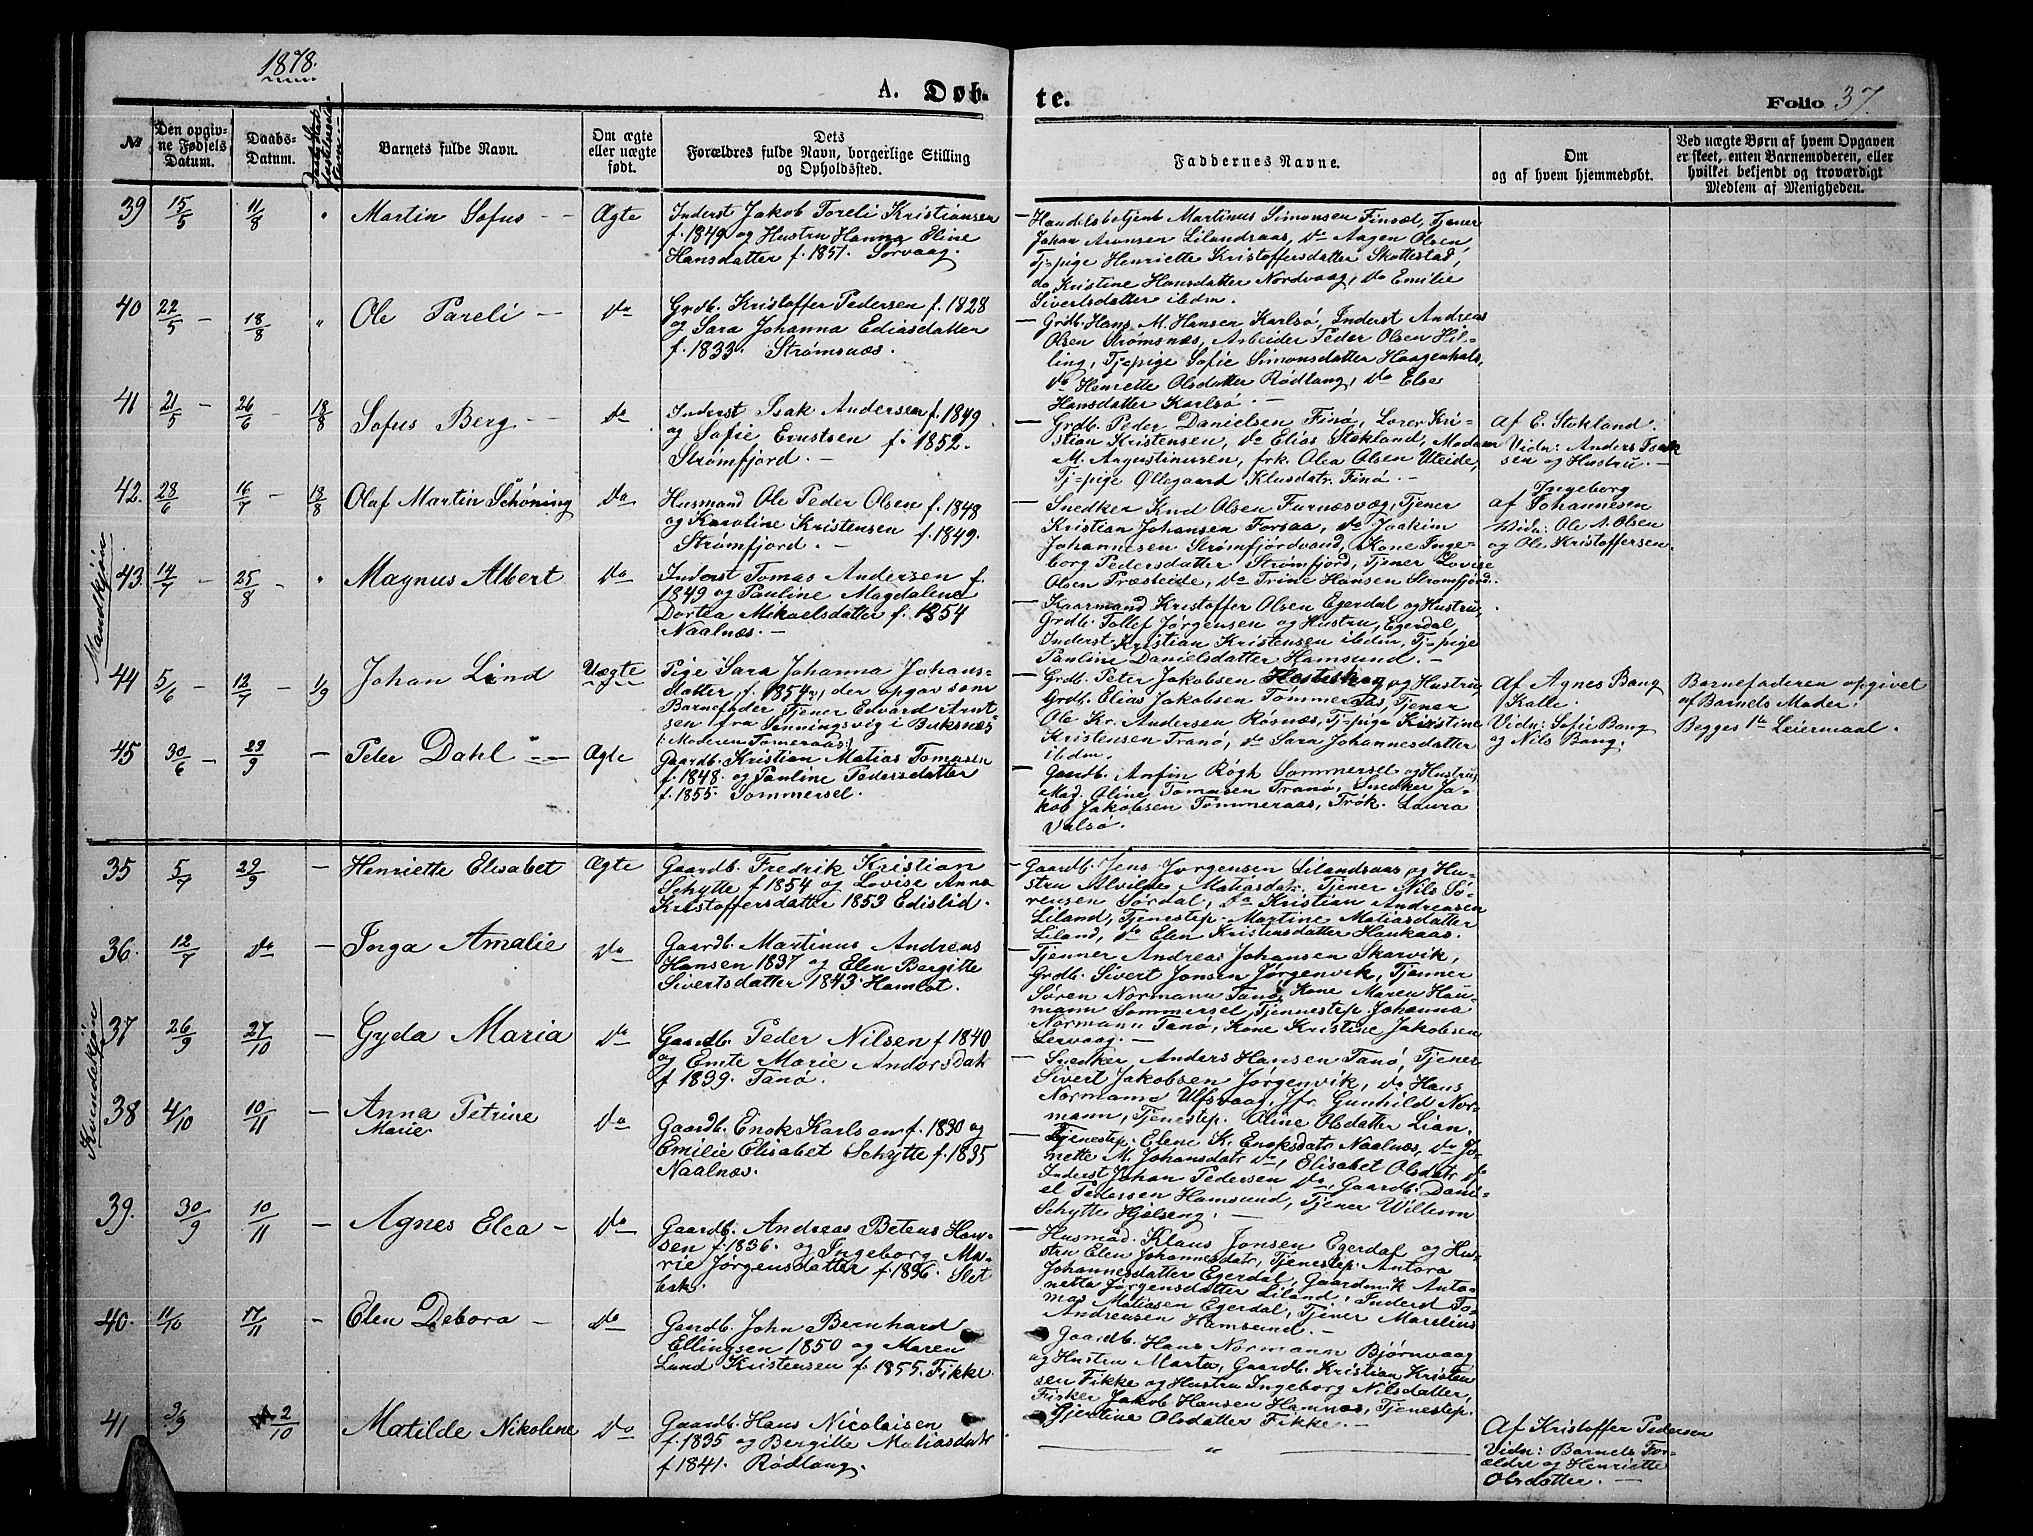 1878.
A. Døb-
te.
Folio 37.
№
Den opgiv-
ne Fødsels
Datum.
Daabs-
Datum.
Barnets fulde Navn.
Om ægte
eller uægte
født.
Dets
Forældres fulde Navn, borgerlige Stilling
og Opholdssted.
Faddernes Navne.
Om
og af hvem hjemmedøbt.
Ved uægte Børn af hvem Opgaven
er skeet, enten Barnemoderen, eller
hvilket bekjendt og troværdigt
Medlem af Menigheden.
Mandkjön
39 15/5 11/8 " Martin Sofus Ægte
Inderst Jakob Toreli Kristiansen
f. 1849 og Hustru Hanna Eline
Hansdatter f. 1851. Sørvaag.
Handelsbetjent Martinus Simonsen Finsæt, Tjener
Johan Aronsen Lilandsaas, do Aagen Olsen,
Tj-pige Henriette Kristoffersdatter Skottestad,
do Kristine Hansdatter Nordvaag, do Emilie
Sivertsdatter ibdm.
40 22/5 18/8 " Ole Pareli do
Grdb. Kristoffer Pedersen f. 1828
og Sara Johanna Ediasdatter
f. 1833. Strømsnæs.
Grdb. Hans M. Hansen Karlsö, Inderst Andreas
Olsen Strømsnæs, Arbeider Peder Olsen Hil-
ling, Tj-pige Sofie Simonsdatter Haagenhals,
do Henriette Olsdatter Rødtang, do Else
Hansdatter Karlsö.
41 21/5 26/6 18/8 Sofus Berg do
Inderst Isak Andersen f. 1849
og Sofie Ernstsen f. 1852.
Strømfjord.
Grdb. Peder Danielsen Finø, Lærer Kri-
stian Kristensen, do Elias Stokland, Madam
M. Augustinussen, frk. Olea Olsen Uteide,
Tj-pige Ollegaard Klusdatr. Finø.
Af E. Stokland.
Vidn: Anders Isak
sen og Hustru.
42. 28/6 16/7 18/8 Olaf Martin Schöning do
Husmand Ole Peder Olsen f. 1848
og Karoline Kristensen f. 1849.
Strømfjord.
Snedker Knud Olsen Furnæsvæg, Tjener
Kristian Johansen Forsaa, do Joakim
Johannesen Strømfjordvand, Kone Inge-
borg Pedersdatter Strømfjord, Tjener Lovise
Olsen Præsteide, do Trine Hansen Strømfjord.
Ingeborg
af Johannesen
Vidn: Ole A. Olsen
og Ole Kristoffersen.
43. 14/7 25/8 " Magnus Albert do
Inderst Tomas Andersen f.
1849 og Pauline Magdalena
Dortea Mikaelsdatter f. 1854
Naalnæs.
Kaarmand Kristoffer Olsen Egerdal og Hustru,
Grdb. Tollef Jørgensen og Hustru, Egerdal,
Inderst Kristian Kristensen ibdm, Tj-pige
Pauline Danielsdatter Hamsund.
44 5/6 12/7 1/9 Johan Lind Uægte
Pige Sara Johanna Johans-
datter, f. 1854, der opgav som
Barnefader, Tjener Edvard Arnt
sen fra Henningsvig i Buksnæs
(Moderen Tømeraas)
Grdb. Peter Jakobsen og Hustru
Grdb. Elias Jakobsen Tømmeraas, Tjener
Ole Kr. Andersen Røsnæs, Tj-pige Kristine
Kristensen Tranø, do Sara Johannesdatter
ibdm.
Af Agnes Bang
Kalle.
Vidn: Sofie Bang
og Nils Bang.
Barnefaderen opgivet
af Barnets Moder.
Begges 1te Leiermaal.
45 30/6 29/9 Peter Dahl Ægte
Gaardb. Kristian Matias Tomasen
f. 1848 og Pauline Pedersdatter
f. 1855. Sommersel.
Gaardb. Anfin Røgh Sommersel og Hustru,
Mad. Oline Tomasen Tranø, Snedker Ja-
kob Jakobsen Tømmeraas, Frøk. Laura
Valsø.
Kvindekjön
35 5/7 29/9 Henriette Elisabet Ægte
Gaardb. Fredrik Kristian
Schytte f 1854 og Lovise Anna
Kristoffersdatter 1853 Edislid.
Gaardb. Jens Jørgensen Lilandsaas og Hu-
stru Alvilde Matiasdatr. Tjener Nils Sø-
rensen Sørdal, do Kristian Andreasen
Liland, Tjenestep. Martine Matiasdatter
Liland, do Elen Kristensdatter Haukaas.
36. 12/7 do Inga Amalie do
Gaardb. Martinus Andreas
Hansen 1837 og Elen Bergitte
Sivertsdatter 1843 Hamlot.
Tjenner Andreas Johansen Skarvik,
Grdb. Sivert Jonsen Jørgenvik, Tjenner
Søren Normann Tanø, Kone Maren Hau-
mann Sommersel, Tjennestep Johanna
Normann Tanø, Kone Kristine Jakobsen
Lervaag.
37 26/9 27/10 Gyda Maria do
Gaardb. Peder Nilsen f 1840
og Emte Marie Andorsdatr
f 1839. Tanø.
Snedker Anders Hansen Tanø, Tjener
Sivert Jakobsen Jørgenvik, do Hans
Normann Ulfsvaag, Jfr. Gunhild Nor-
mann, Tjenestep. Oline Olsdatter Lian.
38 4/10 10/11 Anna Petrine
Marie. do
Gaardb. Enok Karlsen f. 1830 og
Emilie Elisabet Schytte f. 1835
Naalnæs.
Tjenestep. Elene K. Enoksdatr Naalnæs, do Jo-
nette M. Johansdatr do, Elisabet Olsdatr do
Inderst Johan Pedersen do, Gaardb. Dani-
el Pedersen Hamsund, Tjener Willum
Schytte Hjelseng.
39. 30/9 10/11 Agnes Elea do
Gaardb. Andreas Beteus Han-
sen f. 1836. og Ingeborg Ma-
rie Jørgensdatter f. 1836. Slet
bak.
Husmåd. Klaus Jonsen Egerdal og Hus-
tru Elen Johannesdatr, Tjenestep. Antora
Johannesdatter Egerdal, Gaardm. k. Anto-
netta Jørgensdatter Liland, Inderst To-
mas Matiasen Egerdal, Tjener Marelius
Andreasen Hamsund.
40. 11/10 17/11 Elen Debora do
Gaardb. John Bernhard
Ellingsen 1850 og Maren
Lund Kristensen f. 1855. Fikke.
Gaardb. Hans Normann Bjørnvaag
og Hustru Marta, Gaardb. Kristian Kristen
sen Fikke og Hustru Ingeborg Nilsdatter,
Fisker Jakob Hansen Hamnæs, Tjenestep.
Gjertine Olsdatter Fikke.
41 9/9 2/10 Matilde Nikoline do
Gaardb. Hans Nicolaisen
f. 1835 og Bergitte Matiasdatr
f 1841. Rødtang.
"
Af Kristoffer Pedersen
Vidn: Barnets For-
ældre og Henriette
Olsdatter.